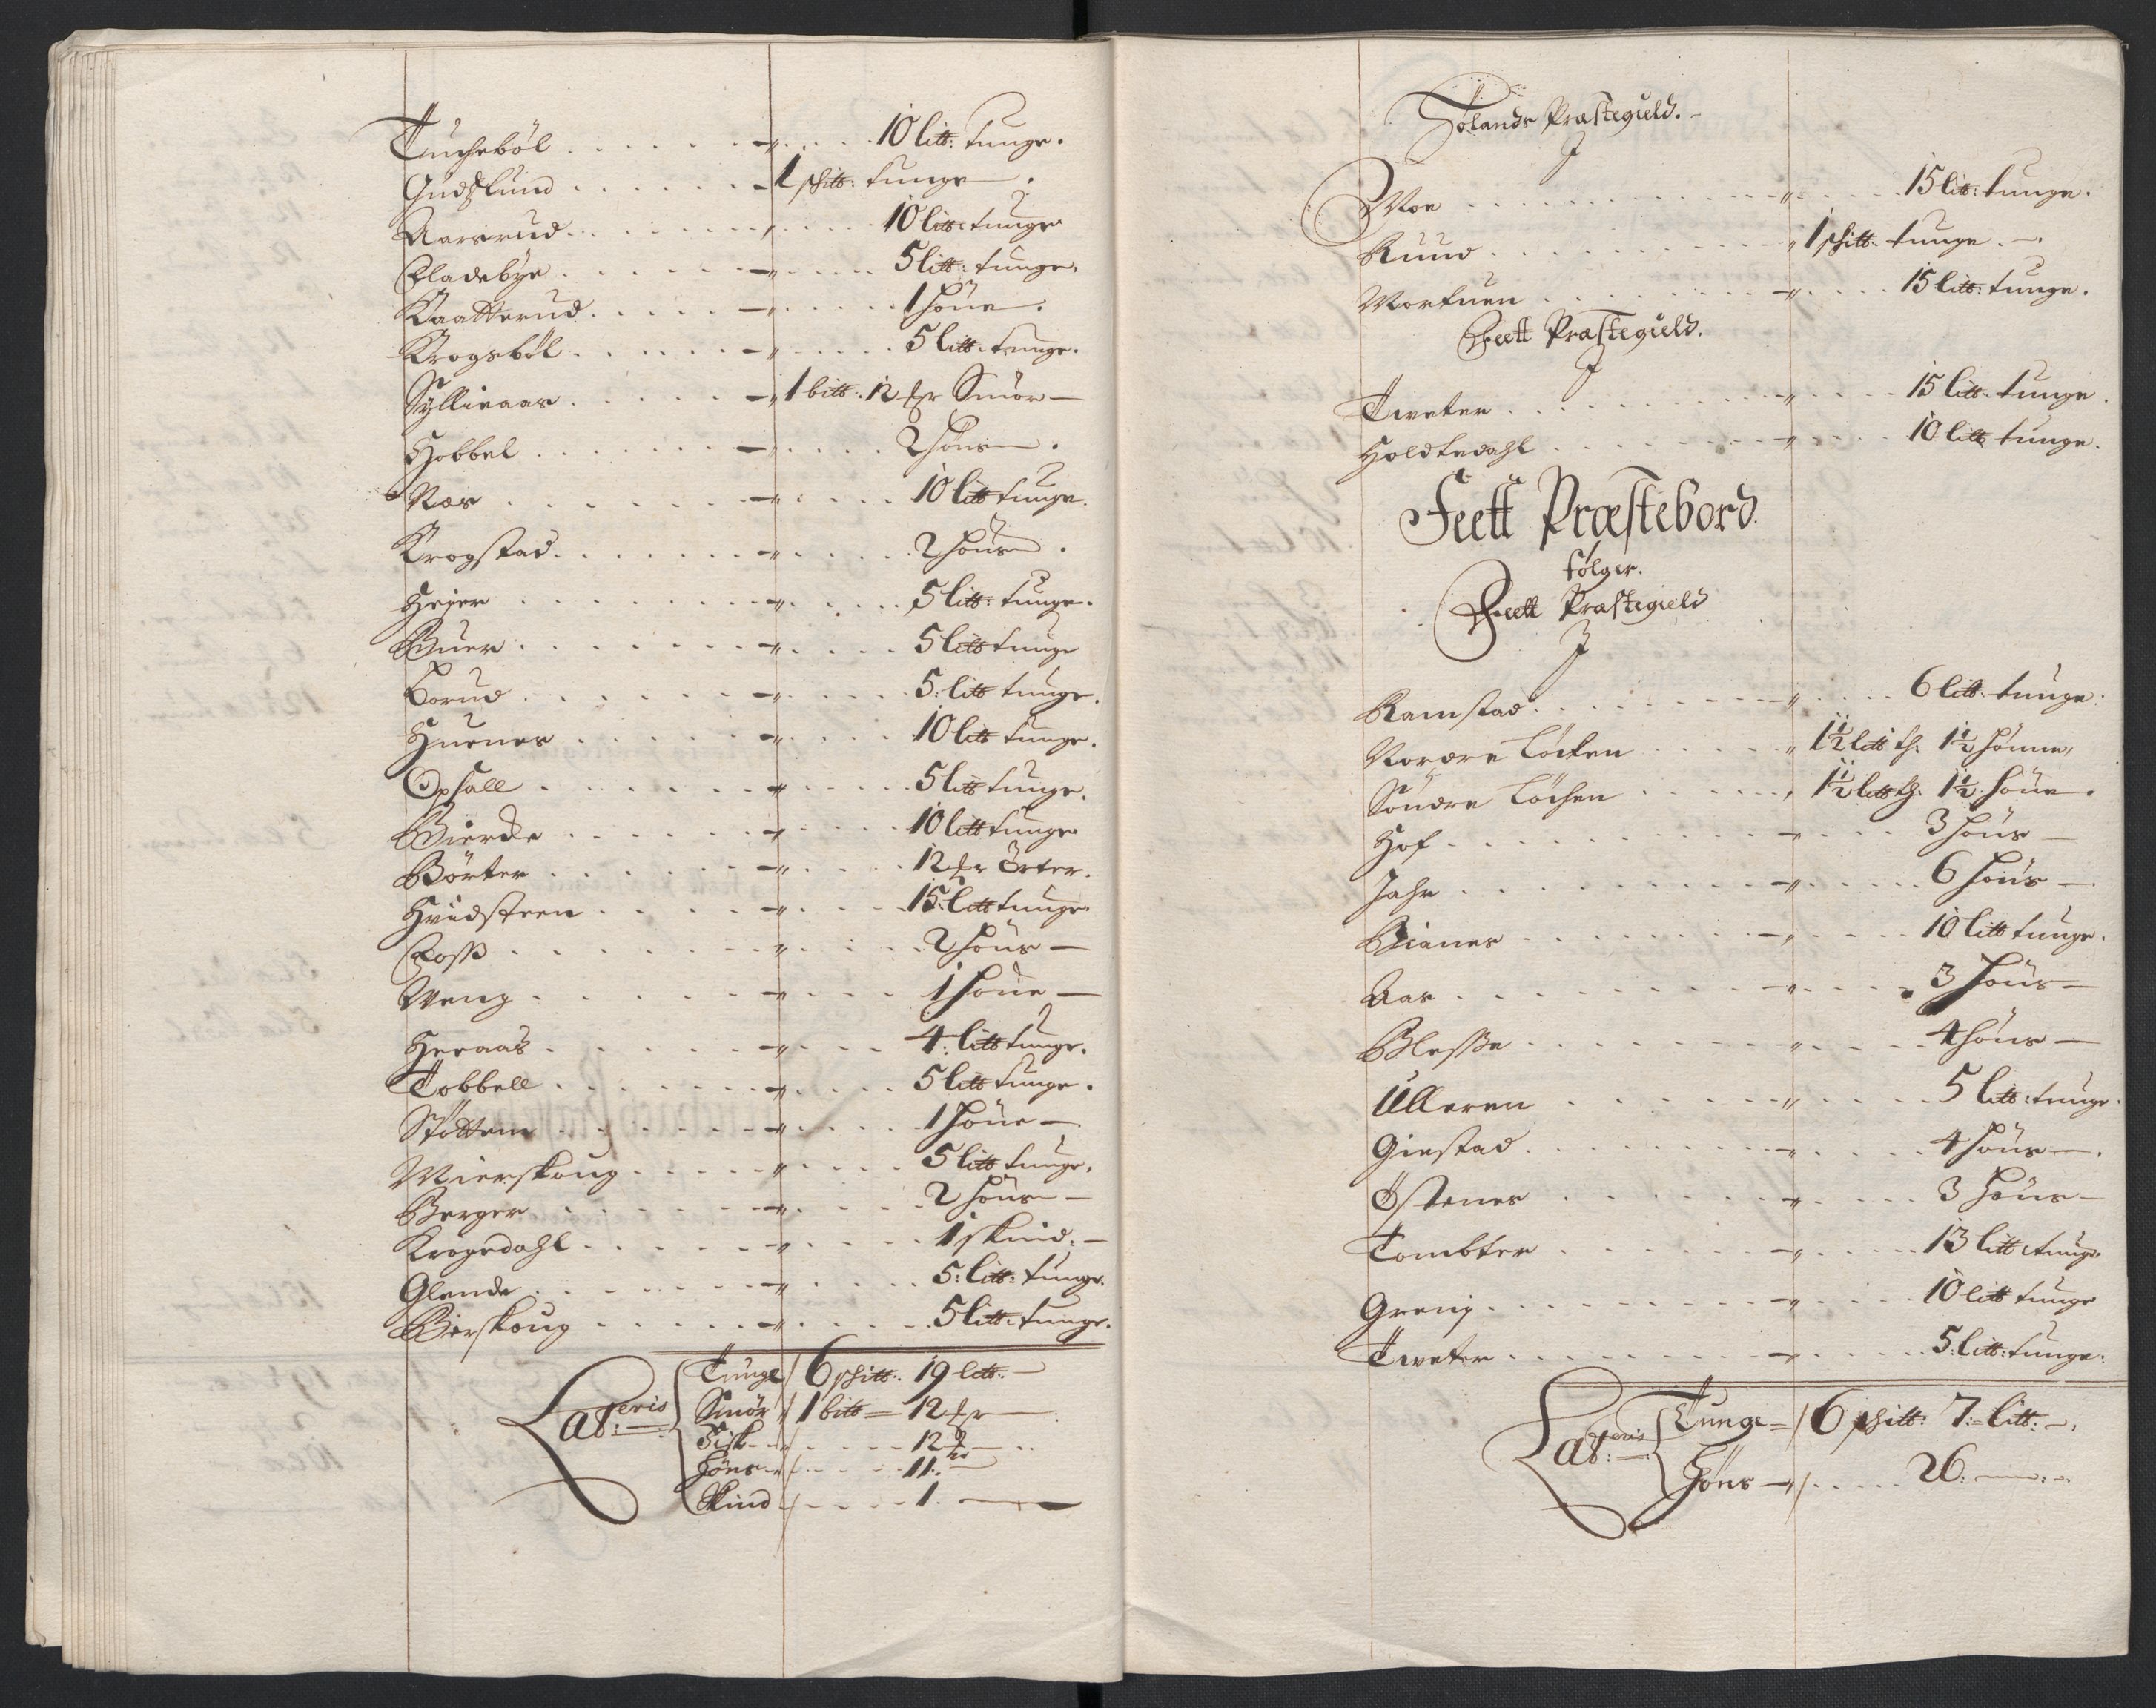 Tucheböl . . . . . . 10 litt: tunge.
Gudzlund . . . . . 1 schitt: tunge.
Aarsrud . . . . . . 10 litt: tunge
Fladebye . . . . . 5 litt: tunge.
Kaatterud . . . . . 1 höne.
Krogsböl . . . . . . 5 litt: tunge.
Syllieaas . . . . . 1 bitt: 12 mkr Smör
Hobbel . . . . . . 2 höns.
Næs . . . . . . 10 litt tunge.
Krogstad . . . . . 2 höns.
Heier . . . . . . 5 litt: tunge.
Buer . . . . . . 5 litt tunge
Borud . . . . . . 5: litt tunge.
Huenes . . . . . . 10 litt tunge.
Opsall . . . . . . 5 litt tunge.
Gierde . . . . . . 10 litt tunge
Börter . . . . . . 12 mkr Örter.
Hvidsteen . . . . . 15: litt tunge.
Foss . . . . . . 2 höns
Weng . . . . . . 1 höne
Heraas . . . . . . 4: litt tunge.
Tobbell . . . . . . 5 litt tunge.
Stötten . . . . . . 1 höne
Mierskoug . . . . . 5 litt tunge.
Berger . . . . . . 2 höns
Krogedahl . . . . . 1 skind.
Glende . . . . . . 5: litt: tunge.
Bierskoug . . . . . 5 litt: tunge.
Lat:eris
Tunge 6 schitt: 19 litt:
Smör 1 bitt 12 mkr
Fisk 12
Höns 11.
Skind 1.
Hölands Præstegield.
J
Moe . . . . . . 15 litt: tunge.
Ruud . . . . . . 1 schitt: tunge.
Mortuen . . . . . . 15 litt: tunge.
Feett Præstegield.
J
Tweter . . . . . . 15 litt: tunge.
Holdtedahl . . . . . 10 litt tunge.
Feett Præstebord.
følger.
Feett Præstegield
J
Ramstad . . . . . . 6 litt: tunge:
Nordre Löcken . . . . 1½ litt th: 1½ hönne,
Söndre Löchen . . . . 1½ litt th: 1½ höne.
Hof . . . . . . 3 höns
Jahr . . . . . . 6 höns
Bianes . . . . . . 10 litt tunge.
Aas . . . . . . 3 höns
Blesse . . . . . . 4 höns
Ulleren . . . . . . 5 litt: tunge.
Giestad . . . . . . 4 höns
Östenes . . . . . . 3 höns
Tombter . . . . . . 13 litt: tunge
Grenj . . . . . . 10 litt tunge
Tweter . . . . . . 5: litt: tunge:
Lat:eris
Tunge 6 schitt: 7: litt:
Höns 26.